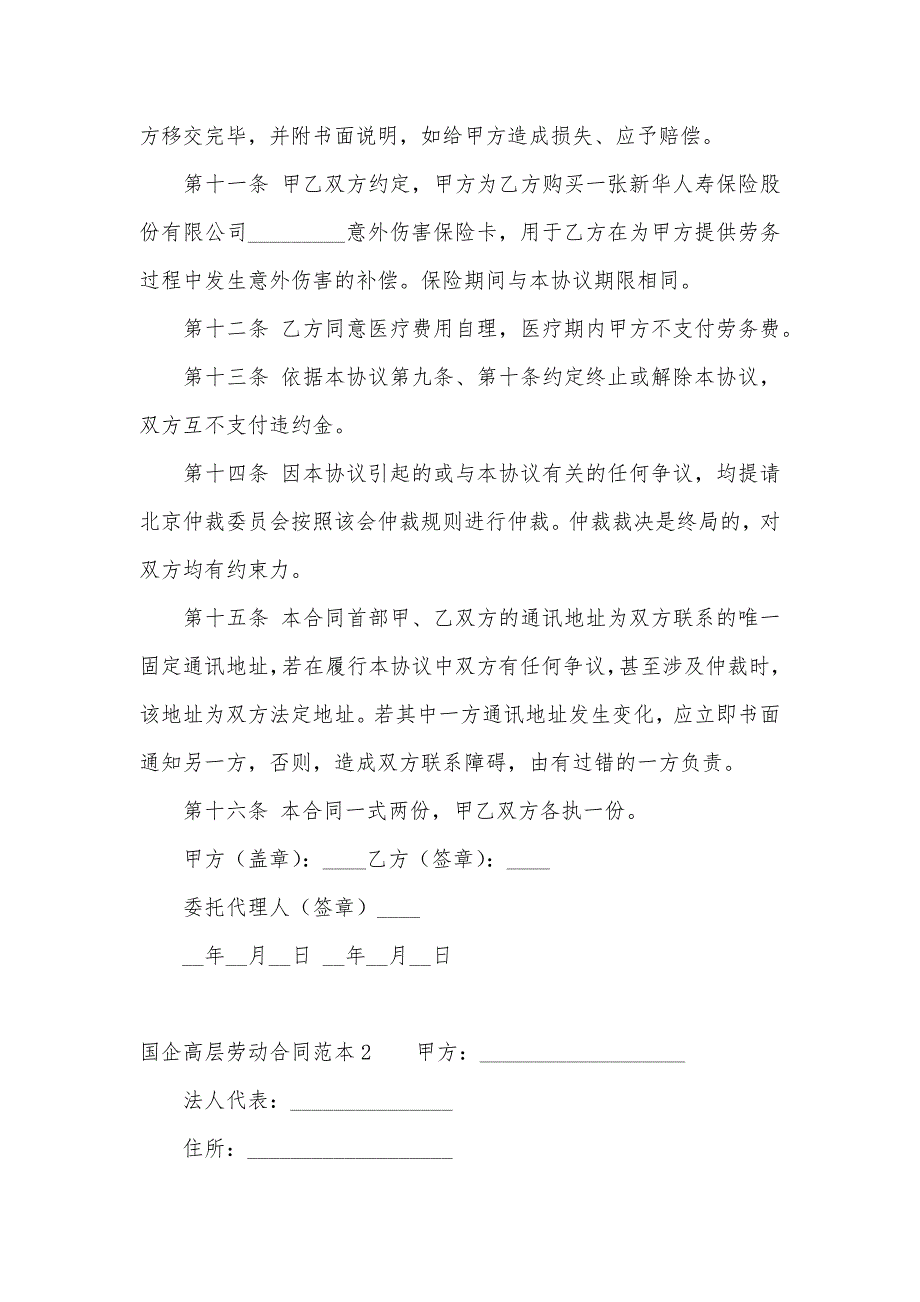 方移交完毕，并附书面说明，如给甲方造成损失、应予赔偿。
第十一条 甲乙双方约定，甲方为乙方购买一张新华人寿保险股
份有限公司_________意外伤害保险卡，用于乙方在为甲方提供劳务
过程中发生意外伤害的补偿。保险期间与本协议期限相同。
第十二条 乙方同意医疗费用自理，医疗期内甲方不支付劳务费。
第十三条 依据本协议第九条、第十条约定终止或解除本协议，
双方互不支付违约金。
第十四条 因本协议引起的或与本协议有关的任何争议，均提请
北京仲裁委员会按照该会仲裁规则进行仲裁。仲裁裁决是终局的，对
双方均有约束力。
第十五条 本合同首部甲、乙双方的通讯地址为双方联系的唯一
固定通讯地址，若在履行本协议中双方有任何争议，甚至涉及仲裁时，
该地址为双方法定地址。若其中一方通讯地址发生变化，应立即书面
通知另一方，否则，造成双方联系障碍，由有过错的一方负责。
第十六条 本合同一式两份，甲乙双方各执一份。
甲方（盖章）：____乙方（签章）：____
委托代理人（签章）____
__年__月__日 __年__月__日
国企高层劳动合同范本2　　甲方：___________________
法人代表：_______________
住所：___________________